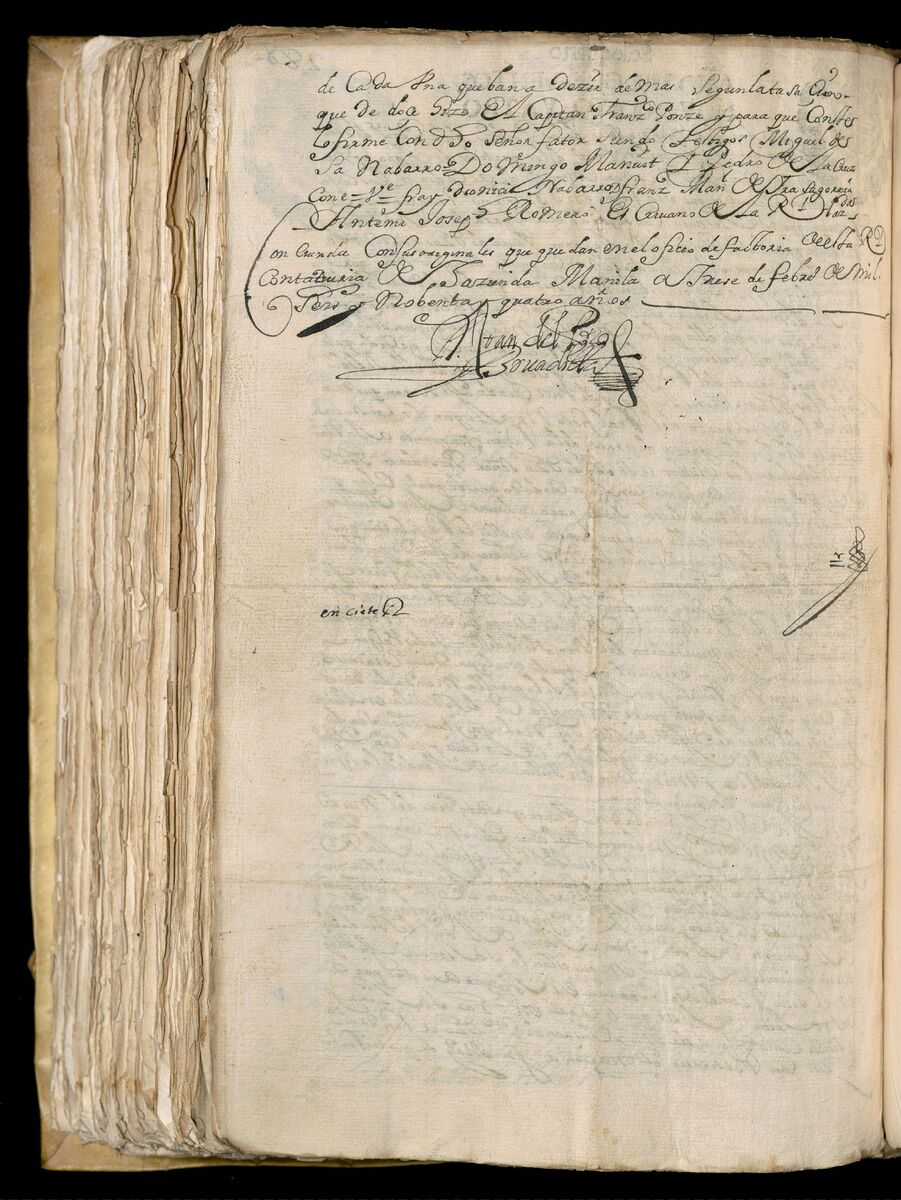 de Cada Vna que ban a dezir de mas segun la tasaçion
que de doçe hizo el Capitan Franzco Ponze y para que Conste
lo firme Con dho Señor fator siendo testigos Miguel de
sa Nabarro = Domingo Manuel y Pedro de la Cruz
fray Dionicio Nabarro
Antemi Joseph Romero Escriuano de la Rl haz.da
Concuerda Con sus originales que quedan en el ofisio de factoria de esta Rl
Contaduria de hazienda Manila a trese de febro de mil
Seis y Nobenta y quatro años
Joan del Pozo
enciete